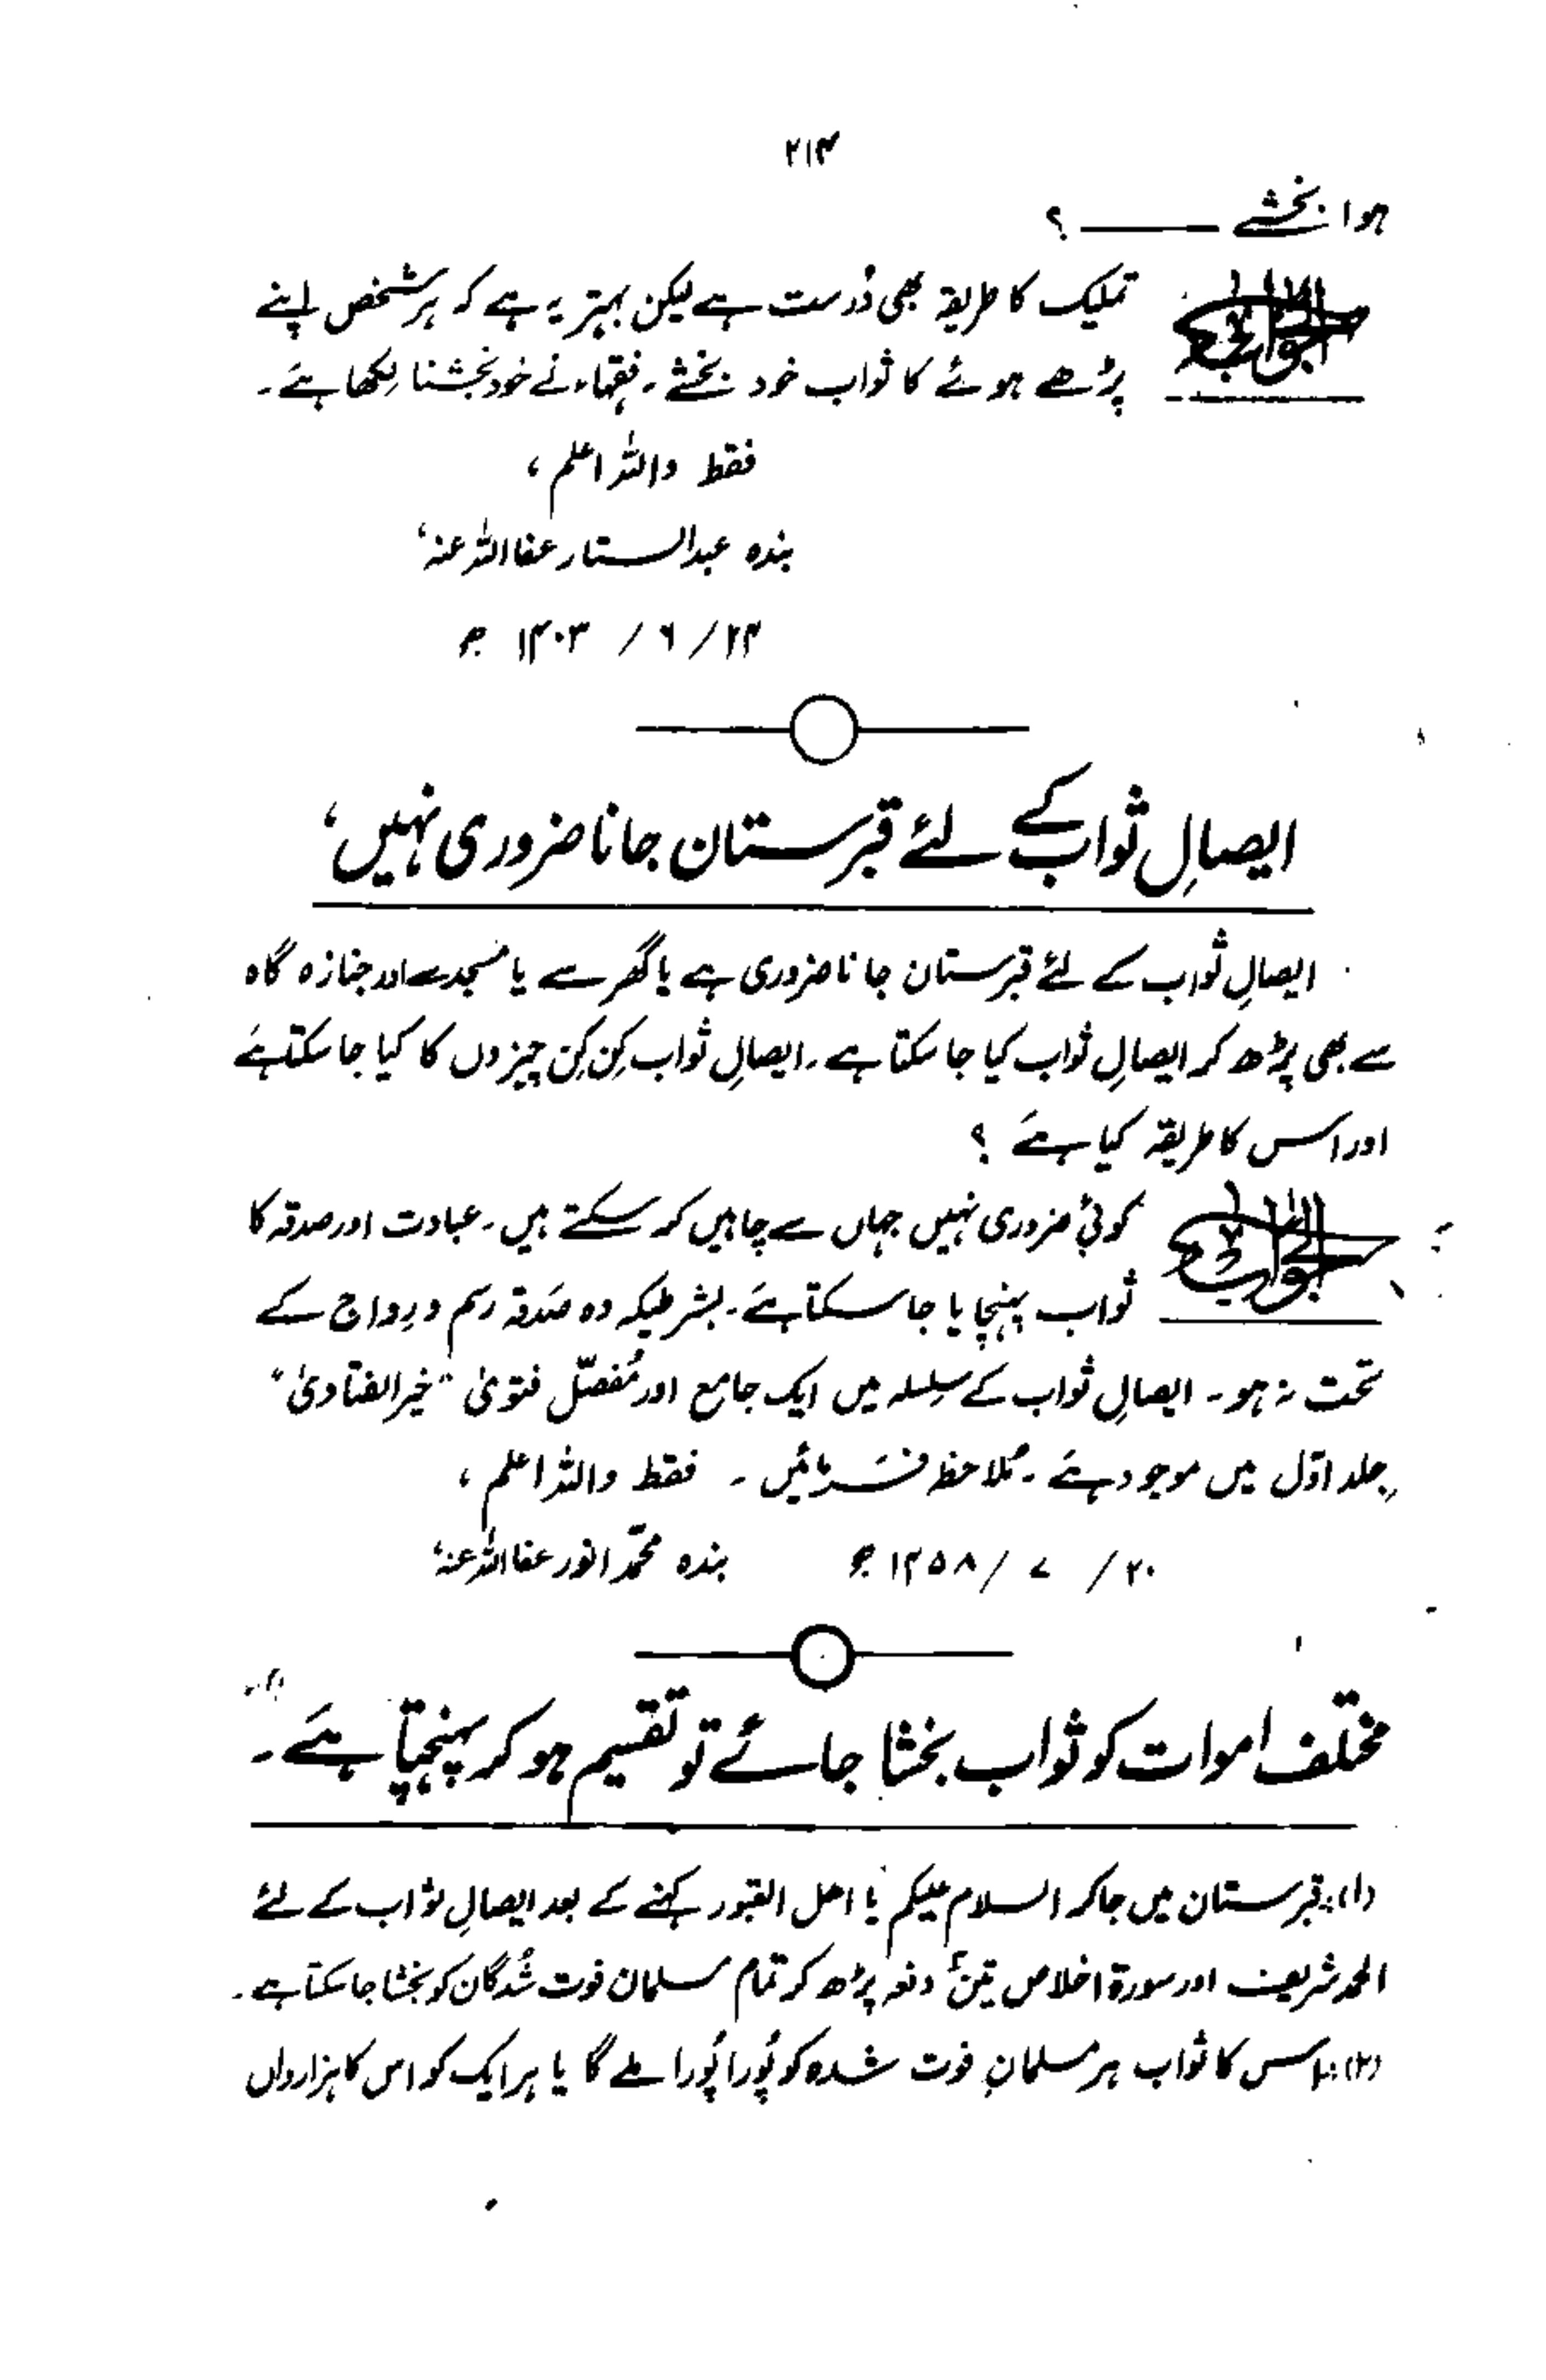 ۲۱۴
ہوا بخشے ـــــــــ ؟
الجواب
تملیک کا طریقہ بھی دُرست ہے لیکن بہتر یہ ہے کہ ہر شخص اپنے
پڑھے ہوئے کا ثواب خود بخشے۔ فقہاء نے خود بخشنا لِکھا ہے۔
فقط واللہ اعلم،
بندہ عبدالستار عفااللہ عنہ،
۲۴/ ۶ / ۱۴۰۳ ھ
ایصالِ ثواب کے لئے قبرستان جانا ضروری نہیں،
ایصالِ ثواب کے لئے قبرستان جانا ضروری ہے یا گھر سے یا مسجد سے اور جنازہ گاہ
سے بھی پڑھ کر ایصالِ ثواب کیا جا سکتا ہے۔ ایصالِ ثواب کِن کِن چیزوں کا کیا جا سکتا ہے
اور اس کا طریقہ کیا ہے ؟
الجواب
کوئی ضروری نہیں جہاں سے چاہیں کر سکتے ہیں۔ عبادت اور صدقہ کا
ثواب پہنچایا جا سکتا ہے۔ بشرطیکہ وہ صَدقہ رسم و رِواج کے
تحت نہ ہو۔ ایصالِ ثواب کے سِلسلہ میں ایک جامع اور مُفصّل فتویٰ "خیرالفتاویٰ"
جلد اوّل میں موجود ہے۔ مُلاحظہ فرمائیں۔ فقط واللہ اعلم،
۲۰/ ۷ /۱۴۵۸ ھ بندہ محمّد انور عفااللہ عنہ،
مختلف اموات کو ثواب بخشا جائے تو تقسیم ہو کر پہنچتا ہے۔
(۱)؛ قبرستان میں جا کر السلام علیکم یا اھل القبور کہنے کے بعد ایصالِ ثواب کے لئے
الحمد شریف اور سورۃ اخلاص تین دفعہ پڑھ کر تمام مسلمان فوت شُدگان کو بخشا جا سکتا ہے۔
(۲)؛ اس کا ثواب ہر مسلمان فوت شدہ کو پُورا پُورا ملے گا یا ہر ایک کو اس کا ہزارواں